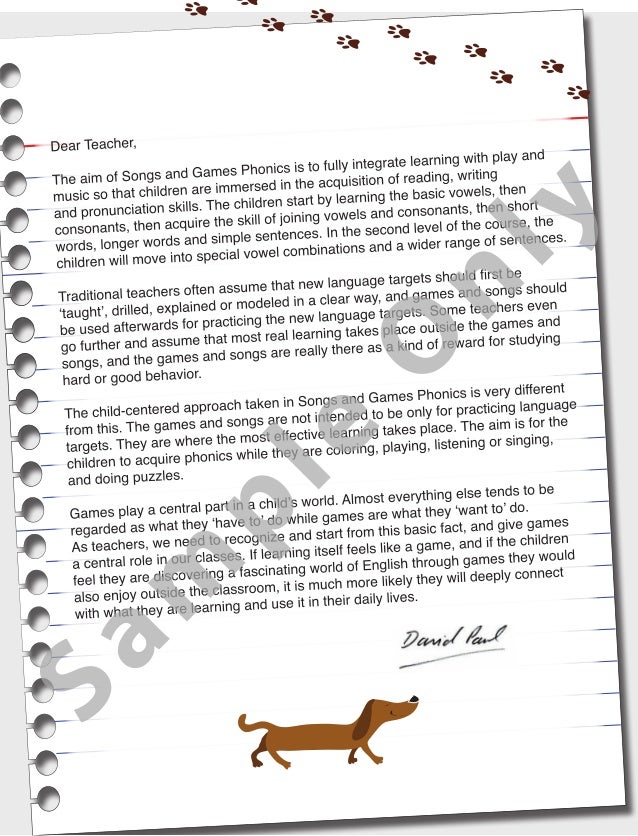 Dear Teacher,
The aim of Songs and Games Phonics is to fully integrate learning with play and
music so that children are immersed in the acquisition of reading, writing
and pronunciation skills. The children start by learning the basic vowels, then
consonants, then acquire the skill of joining vowels and consonants, then short
words, longer words and simple sentences. In the second level of the course, the
children will move into special vowel combinations and a wider range of sentences.
Traditional teachers often assume that new language targets should first be
‘taught’, drilled, explained or modeled in a clear way, and games and songs should
be used afterwards for practicing the new language targets. Some teachers even
go further and assume that most real learning takes place outside the games and
songs, and the games and songs are really there as a kind of reward for studying
hard or good behavior.
The child-centered approach taken in Songs and Games Phonics is very different
from this. The games and songs are not intended to be only for practicing language
targets. They are where the most effective learning takes place. The aim is for the
children to acquire phonics while they are coloring, playing, listening or singing,
and doing puzzles.
Games play a central part in a child’s world. Almost everything else tends to be
regarded as what they ‘have to’ do while games are what they ‘want to’ do.
As teachers, we need to recognize and start from this basic fact, and give games
a central role in our classes. If learning itself feels like a game, and if the children
feel they are discovering a fascinating world of English through games they would
also enjoy outside the classroom, it is much more likely they will deeply connect
with what they are learning and use it in their daily lives.
David Paul
Sample Only